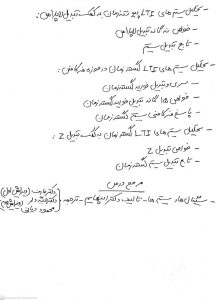 - تحلیل سیستم های LTI پیوسته زمان به کمک تبدیل لاپلاس:
- خواص نه گانه تبدیل لاپلاس
- تابع تبدیل سیستم
- تحلیل سیستم های LTI گسسته زمان در حوزه فرکانس:
- سری و تبدیل فوریه گسسته زمان
- خواص گانه تبدیل فوریه گسسته زمان
- پاسخ فرکانسی سیستم گسسته زمان
- تحلیل سیستم های LTI گسسته زمان به کمک تبدیل Z:
- خواص تبدیل Z
- تابع تبدیل سیستم گسسته زمان
مرجع درس
- سیگنال ها و سیستم ها - تالیف دکتر اپنهایم - ترجمه
دکتر
دکتر
محمود دیانی